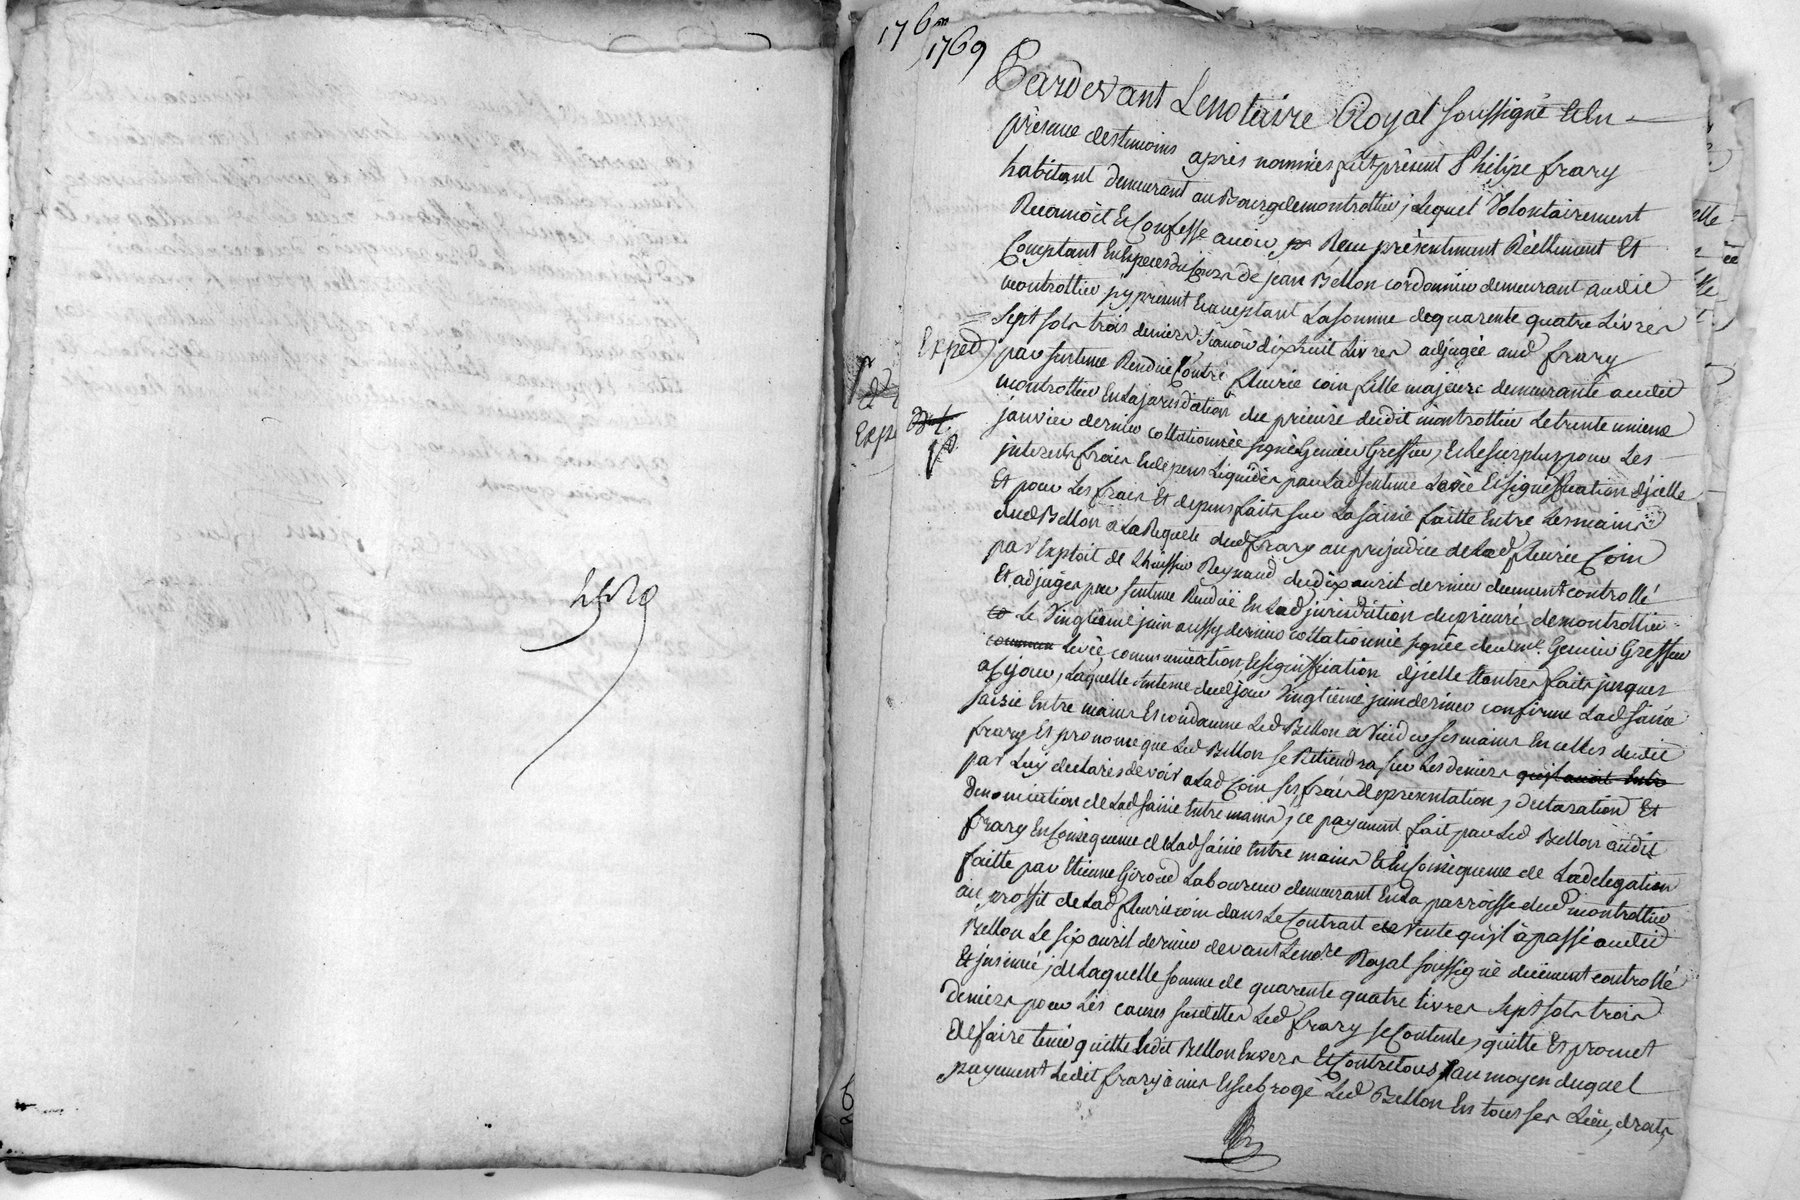 1769
Pardevant Lenotaire Royal soussigné Et En
présence destemoins après nommés fut présent Philipe frary
habitant demeurant au Bourg demontrottier, Lequel Volontairement
Reconnoit Et Confesse avoir Reçu présentement Réellement Et
Comptant En Especes du Cours de jean Bellon cordonnier demeurant audit
montrottier jcy présent Et acceptant La somme de quarente quatre Livres
Sept sols trois deniers sçavoir dixhuit Livres adjugée aud frary
Exped
par sentence Rendue Contre fleurie coin fille majeure demeurante audit
montrottier En La jurisdiction du prieuré dudit montrottier Le trente unieme
janvier dernier collationnée signé Genier Greffier, Et Le surplus pour Les
interests frais Et depens Liquidés par Lad sentence Levée Et signiffication djcelle
Et pour Les frais Et depens faits sur La saisie faitte Entre Les mains
dud Bellon a La Requete dud frary au prejudice de Lad fleurie Coin
par Exploit de L'huissier Reynaud du dix avril dernier duement controllé
Et adjugés par sentence Rendue En Lad jurisdiction du prieuré de montrottier
Le Vingtieme juin aussy dernier collationnée signée dud me. Genier Greffier
Levée communication Et signiffication djcelle Et autres faits jusques
a Cejour, Laquelle sentence dud jour Vingtieme juin dernier confirme Lad saisie
saisie Entre mains Et condamne Led Bellon a Vuider ses mains En celles dudit
frary Et prononce que Led Bellon se Retiendra sur Les deniers quil avoit Entre
par Luy declarés devoir a Lad Coin ses frais de presentation, declaration Et
denonciation de Lad saisie Entre mains, ce payement fait par Led Bellon audit
frary En Consequence de Lad saisie Entre mains Et En Consequence de Lad delegation
faitte par Etienne Giroud Laboureur demeurant En La parroisse dud montrottier
au proffit de Lad fleurie coin dans Le Contrat de Vente qu'jl à passé audit
Bellon Le six avril dernier devant Lenore Royal soussigné duement controllé
Et jnsinué, de Laquelle somme de quarente quatre Livres Sept sols trois
deniers pour Les causes susdittes Led frary se Contente, quitte Et promet
de faire tenir quitte Ledit Bellon Envers Et Contre tous, au moyen duquel
payement Ledit frary à mis Et subrogé Led Bellon En tous ses Lieu, droits